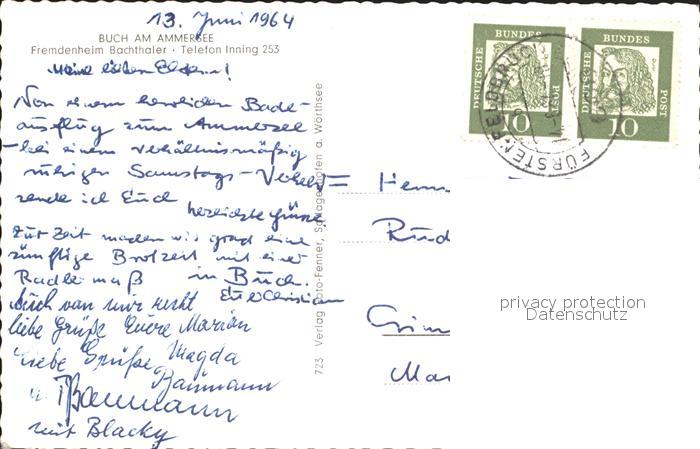 13. Juni 1964
BUCH AM AMMERSEE
Fremdenheim Bachthaler · Telefon Inning 253
Meine lieben Eltern!
Von einem herrlichen Bade-
ausflug zum Ammersee
- bei einem verhältnismäßig
ruhigen Samstags-Verkehr =
sende ich Euch
herzlichste Grüsse.
Zur Zeit machen wir grad eine
zünftige Brotzeit mit einer
Radlermaß in Buch.
Euer Christian
Auch von mir recht
liebe Grüße Euere Marion
Liebe Grüße Magda
Baumann
u. Baumann
mit Blacky
723 Verlag Foto-Fenner, Schlagenhofen a. Wörthsee
DEUTSCHE BUNDES POST
10
DEUTSCHE BUNDES POST
10
FÜRSTENFELDBRUCK
Herrn
Rud
Gim
Mar
privacy protection
Datenschutz